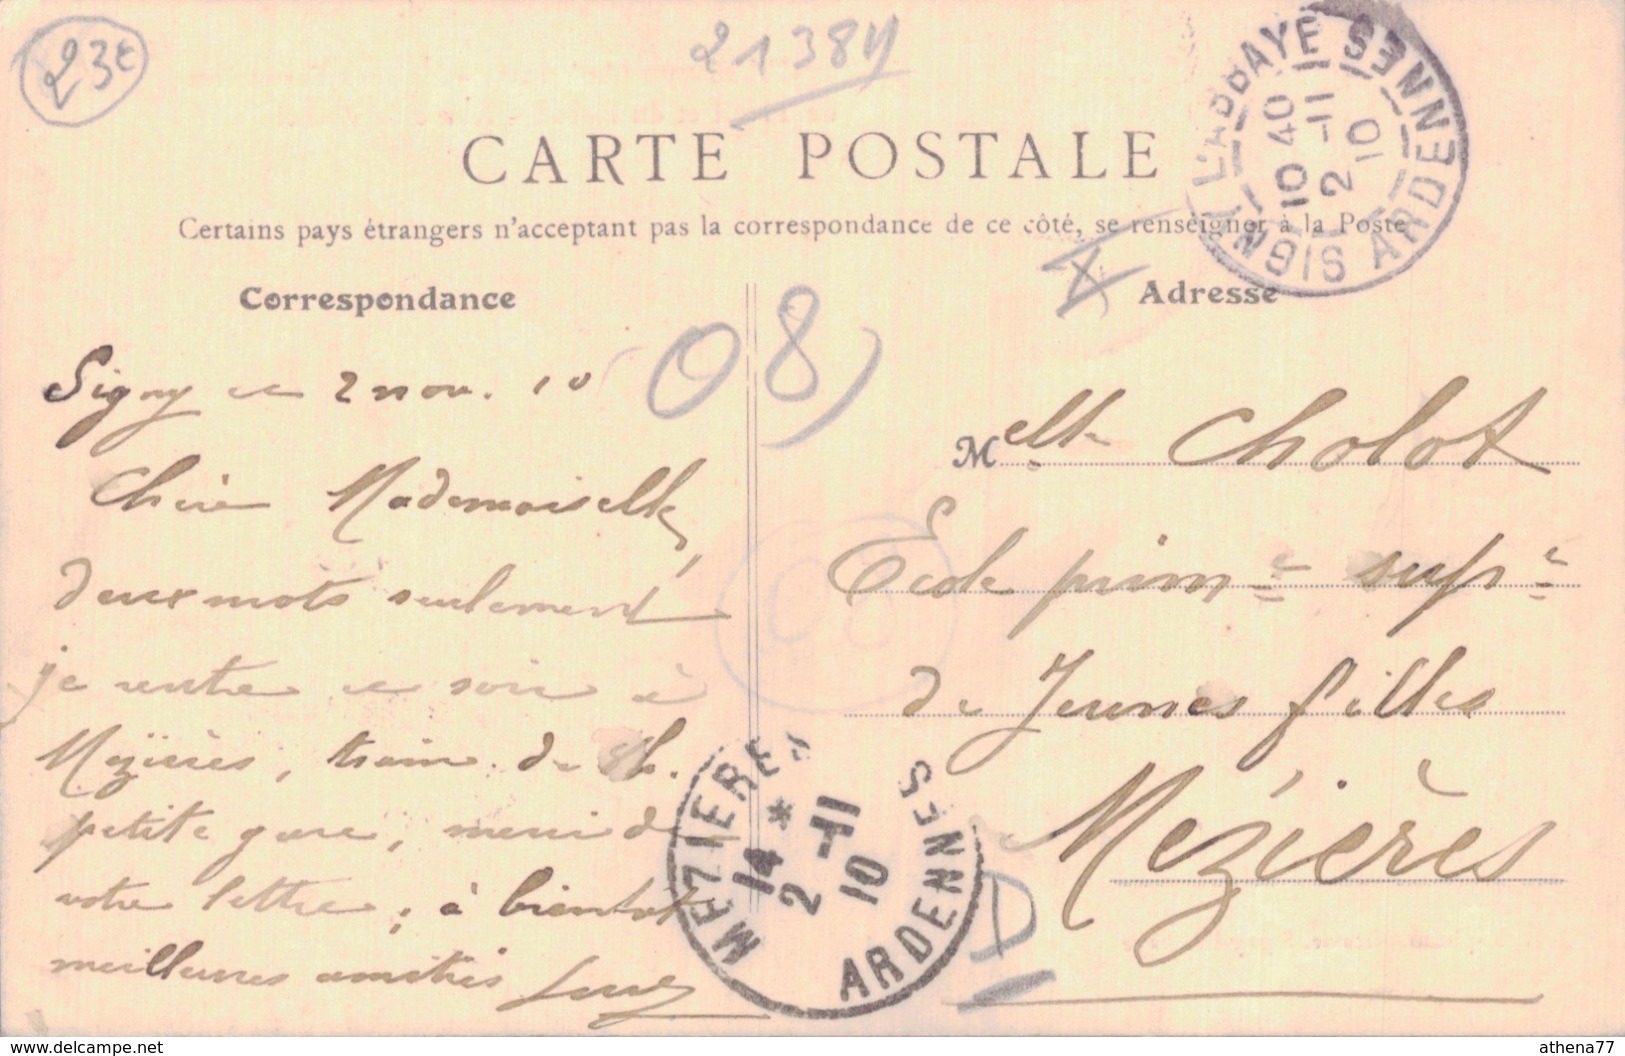 23€
21384
CARTE POSTALE
Certains pays étrangers n'acceptant pas la correspondance de ce côté, se renseigner à la Poste
Correspondance
Adresse
08
SIGNY L'ABBAYE
ARDENNES
10 40
2 -11
10
Signy ce 2 nov. 10
Chère Mademoiselle,
deux mots seulement
je rentre ce soir à
Mézières, train de h.
petite gare, merci de
votre lettre, à bientôt
meilleures amitiés
Melle Cholot
Ecole prime supre
de Jeunes filles
Mézières
MEZIERES
ARDENNES
14 *
2 -11
10
www.delcampe.net
athena77